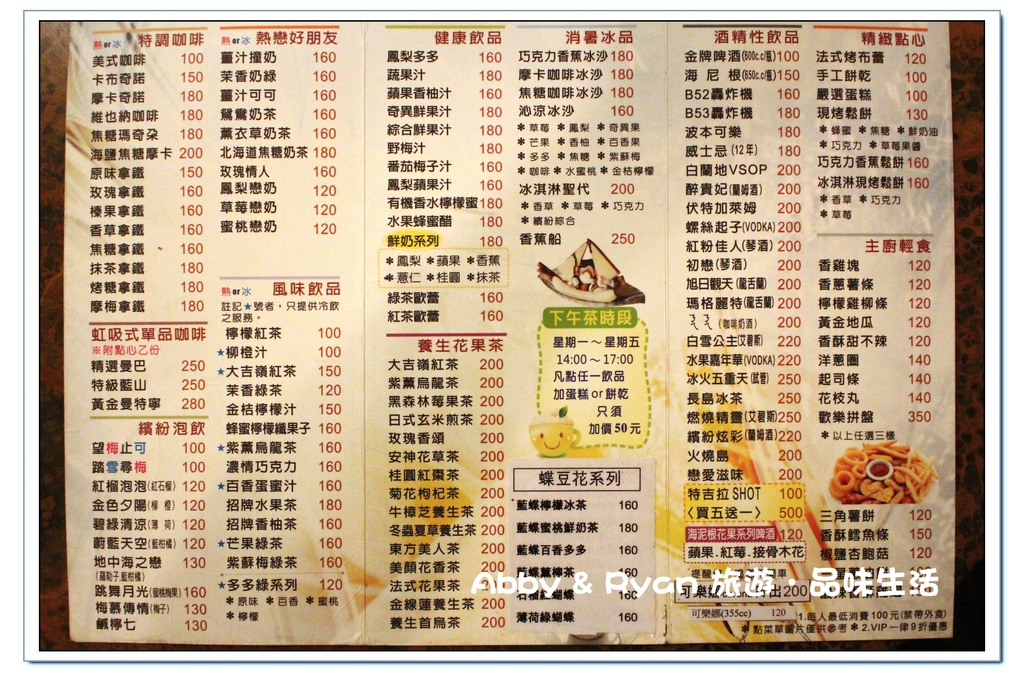 熱or冰 特調咖啡
美式咖啡 100
卡布奇諾 150
摩卡奇諾 180
維也納咖啡 180
焦糖瑪奇朵 180
海鹽焦糖摩卡 200
原味拿鐵 150
玫瑰拿鐵 160
榛果拿鐵 160
香草拿鐵 160
焦糖拿鐵 160
抹茶拿鐵 180
烤糖拿鐵 180
摩梅拿鐵 180
虹吸式單品咖啡
※附點心乙份
精選曼巴 250
特級藍山 250
黃金曼特寧 280
繽紛泡飲
望梅止可 100
踏雪尋梅 100
紅榴泡泡(紅石榴) 120
金色夕陽(柳橙) 120
碧綠清涼(薄荷) 120
蔚藍天空(藍柑橘) 120
地中海之戀 130
跳舞月光(蜜桃梅果) 160
梅慕傳情(梅子) 130
鹹檸七 130
熱or冰 熱戀好朋友
薑汁撞奶 160
茉香奶綠 160
薑汁可可 160
鴛鴦奶茶 160
薰衣草奶茶 160
北海道焦糖奶茶 180
玫瑰情人 160
鳳梨戀奶 120
草莓戀奶 120
蜜桃戀奶 120
熱or冰 風味飲品
註記★號者，只提供冷飲
之服務。
檸檬紅茶 100
★柳橙汁 100
★大吉嶺紅茶 150
茉香綠茶 120
金桔檸檬汁 150
蜂蜜檸檬纖果子 160
★紫薰烏龍茶 160
濃情巧克力 160
★百香蛋蜜汁 160
招牌水果茶 180
招牌香柚茶 160
★芒果綠茶 160
紫蘇梅綠茶 160
★多多綠系列 120
＊原味 ＊百香 ＊蜜桃
＊檸檬
健康飲品
鳳梨多多 160
蔬果汁 180
蘋果香柚汁 160
奇異鮮果汁 180
綜合鮮果汁 180
野梅汁 180
番茄梅子汁 160
鳳梨蘋果汁 160
有機香水檸檬蜜 180
水果蜂蜜醋 180
鮮奶系列 180
＊鳳梨 ＊蘋果 ＊香蕉
＊薏仁 ＊桂圓 ＊抹茶
綠茶歐蕾 160
紅茶歐蕾 160
養生花果茶
大吉嶺紅茶 200
紫薰烏龍茶 200
黑森林莓果茶 200
日式玄米煎茶 200
玫瑰香頌 200
安神花草茶 200
桂圓紅棗茶 200
菊花枸杞茶 200
牛樟芝養生茶 200
冬蟲夏草養生茶 200
東方美人茶 200
美顏花香茶 200
法式花果茶 200
金線蓮養生茶 200
養生首烏茶 200
消暑冰品
巧克力香蕉冰沙 180
摩卡咖啡冰沙 180
焦糖咖啡冰沙 180
沁涼冰沙 160
＊草莓 ＊鳳梨 ＊奇異果
＊芒果 ＊香柚 ＊百香果
＊多多 ＊焦糖 ＊紫蘇梅
＊咖啡 ＊水蜜桃 ＊金桔檸檬
冰淇淋聖代 200
＊香草 ＊草莓 ＊巧克力
＊繽紛綜合
香蕉船 250
下午茶時段
星期一～星期五
14:00～17:00
凡點任一飲品
加蛋糕or餅乾
只須
加價50元
蝶豆花系列
藍蝶檸檬冰茶 160
藍蝶蜜桃鮮奶茶 180
藍蝶百香多多 160
160
160
薄荷綠蝴蝶 160
酒精性飲品
金牌啤酒(600c.c/瓶) 100
海尼根(650c.c/瓶) 150
B52轟炸機 160
B53轟炸機 180
波本可樂 180
威士忌(12年) 180
白蘭地VSOP 200
醉貴妃(蘭姆酒) 200
伏特加萊姆 200
螺絲起子(VODKA) 200
紅粉佳人(琴酒) 200
初戀(琴酒) 200
旭日觀天(龍舌蘭) 200
瑪格麗特(龍舌蘭) 200
ㄋㄋ(咖啡奶酒) 200
白雪公主(艾碧斯) 200
水果嘉年華(VODKA) 220
冰火五重天(試管) 250
長島冰茶 250
燃燒精靈(艾碧斯) 250
繽紛炫彩(蘭姆酒) 220
火燒島 200
戀愛滋味 200
特吉拉SHOT 100
〈買五送一〉 500
海泥根花果系列啤酒
蘋果.紅莓.接骨木花
可樂娜(355cc) 120
精緻點心
法式烤布蕾 120
手工餅乾 100
嚴選蛋糕 100
現烤鬆餅 130
＊蜂蜜 ＊焦糖 ＊鮮奶油
＊巧克力 ＊草莓果醬
巧克力香蕉鬆餅 160
冰淇淋現烤鬆餅 160
＊香草 ＊巧克力
＊草莓
主廚輕食
香雞塊 120
香蔥薯條 120
檸檬雞柳條 120
黃金地瓜 120
香酥甜不辣 120
洋蔥圈 140
起司條 140
花枝丸 140
歡樂拼盤 350
＊以上任選三樣
三角薯餅 120
香酥鱈魚條 150
椒鹽杏鮑菇 120
1.每人最低消費100元(禁帶外食)
＊點菜單圖片僅供參考 ＊2.VIP一律9折優惠
Abby & Ryan 旅遊・品味生活